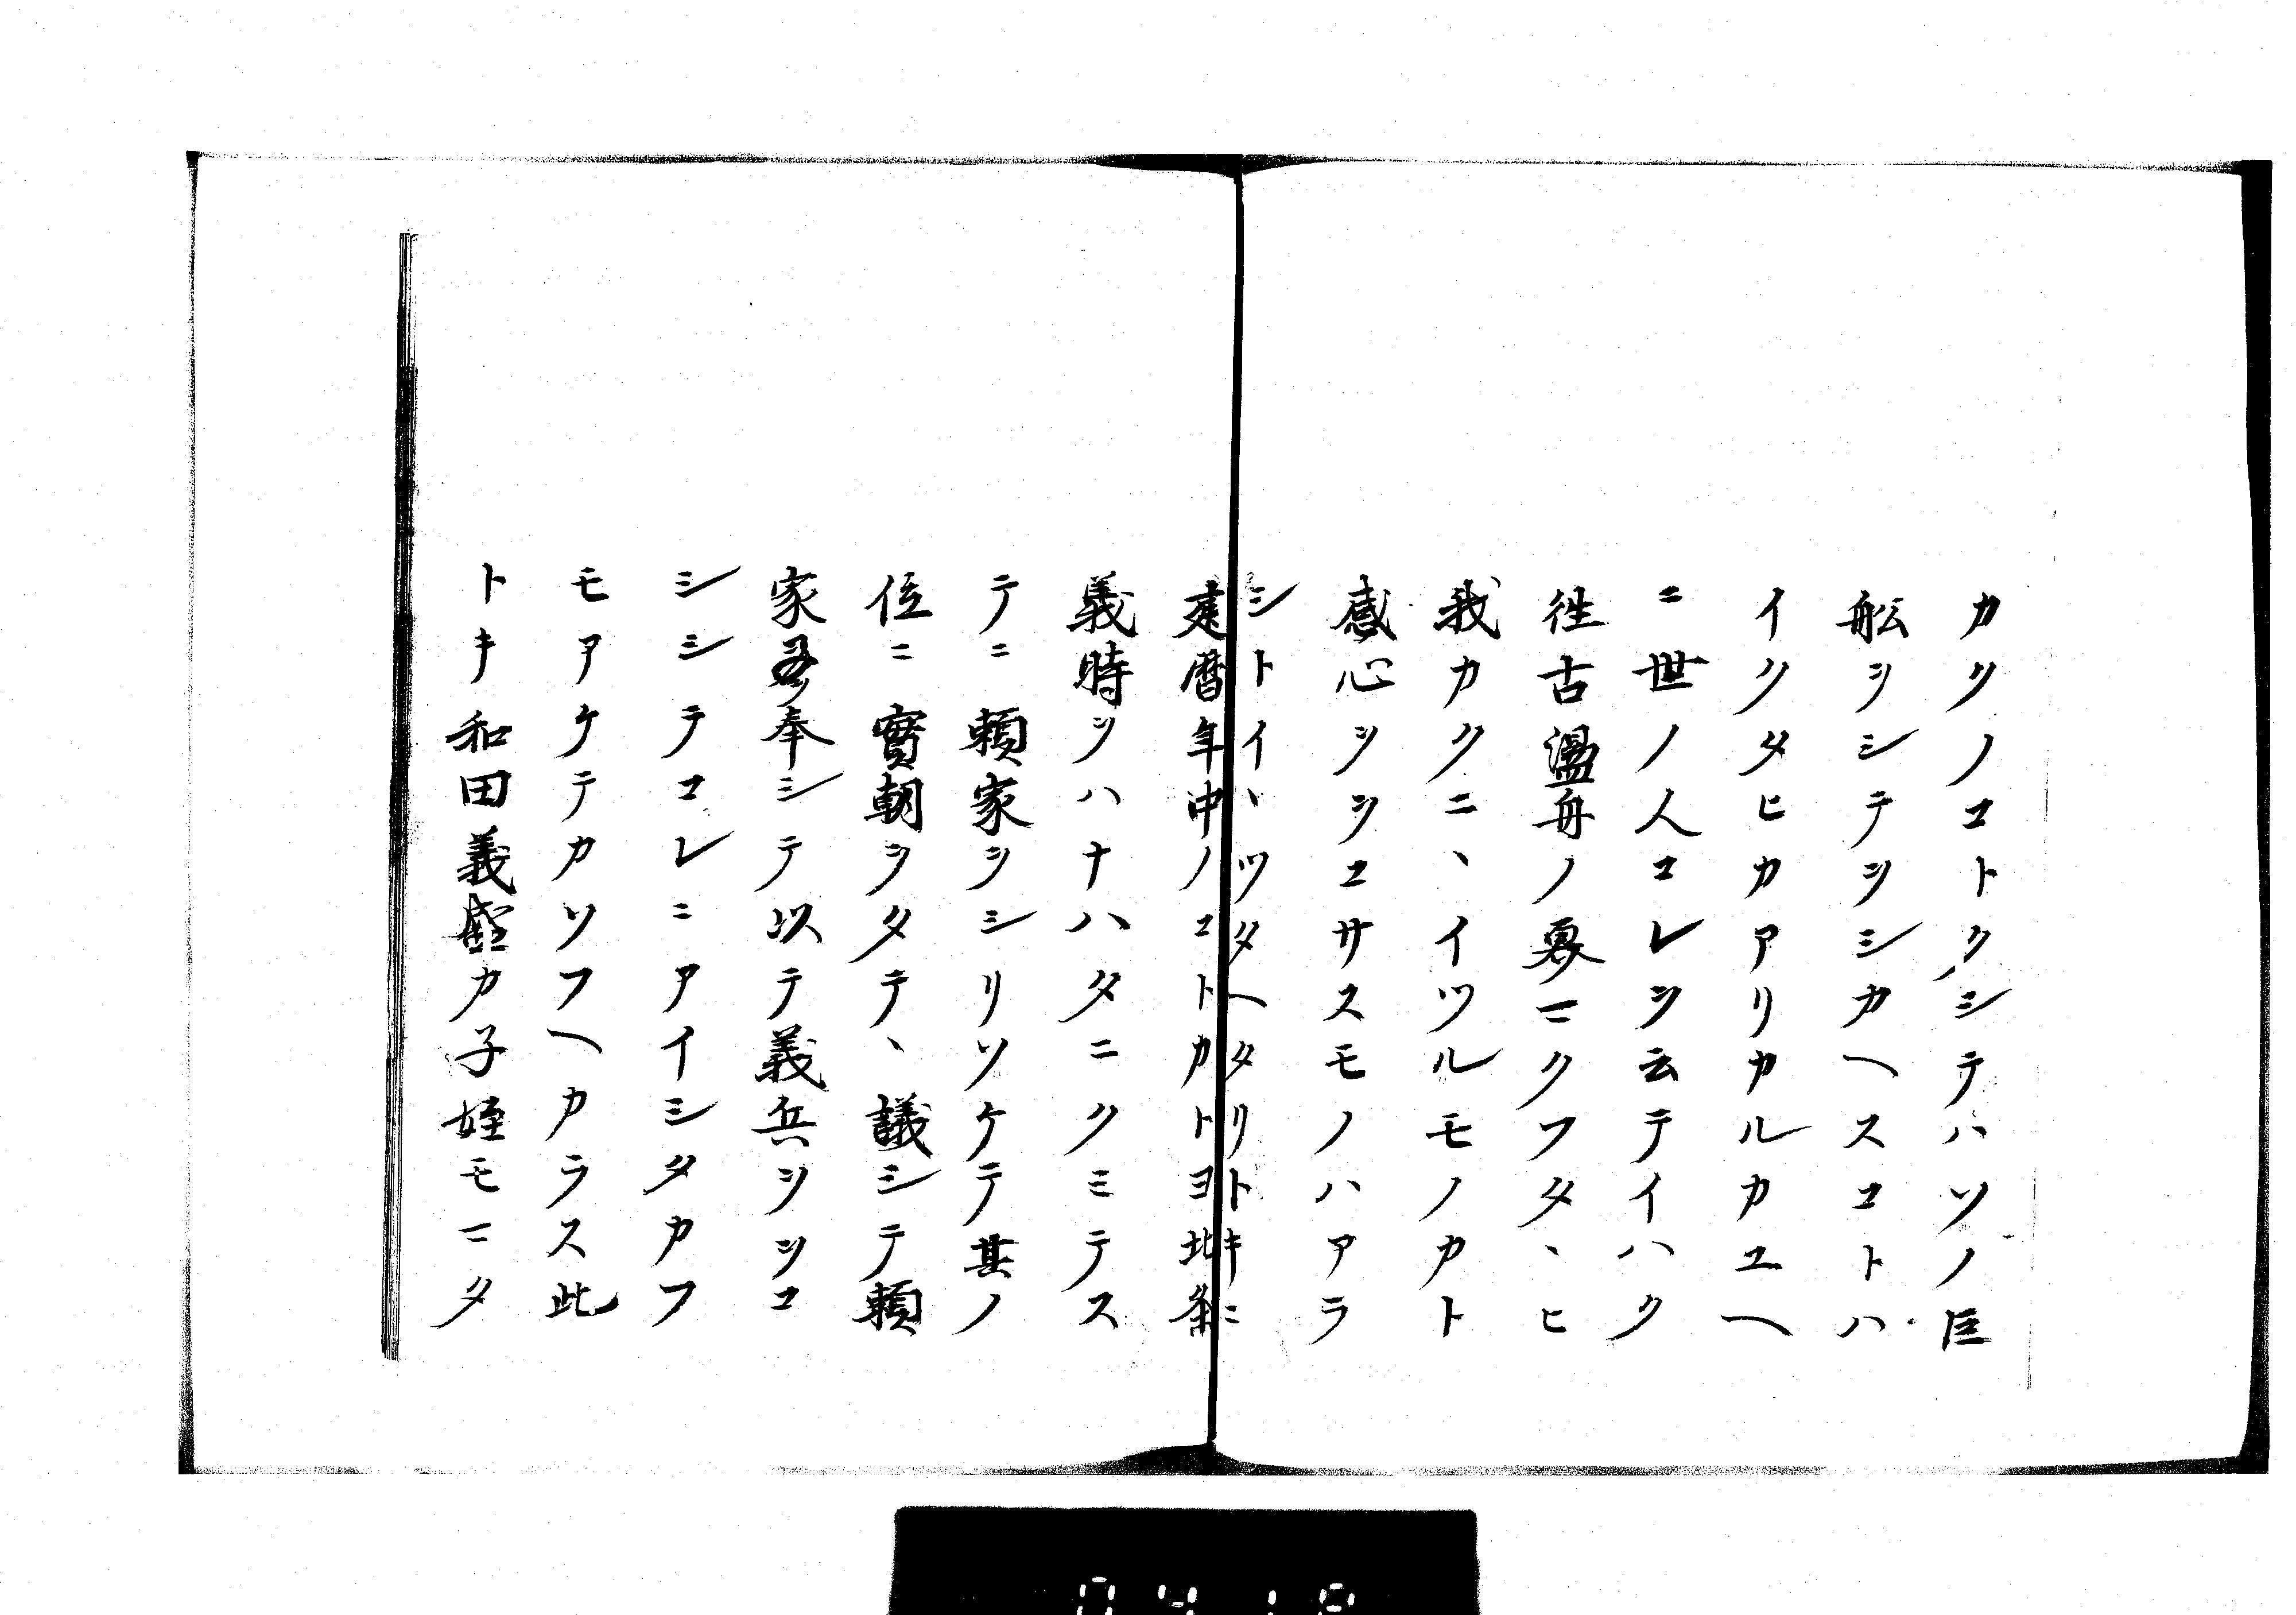 カクノコトクシテハソノ巨
舩ヲシテヲシカヘスコトハ
イクタヒカアリカルカユヘ
ニ世ノ人コレヲ云テイハク
徃古盪舟ノ奡ニクフタヽヒ
我カクニヽイツルモノカト
感心ヲヲコサスモノハアラ
シトイヽツタヘタリトキニ
建暦年中ノコトカトヨ北条
義時ヲハナハタニクミテス
テニ頼家ヲシリソケテ其ノ
位ニ實朝ヲタテヽ議シテ頼
家ヲ奉シテ以テ義兵ヲヲコ
シシテコレニアイシタカフ
モアケテカソフヘカラス此
トキ和田義盛カ子姪モニタ